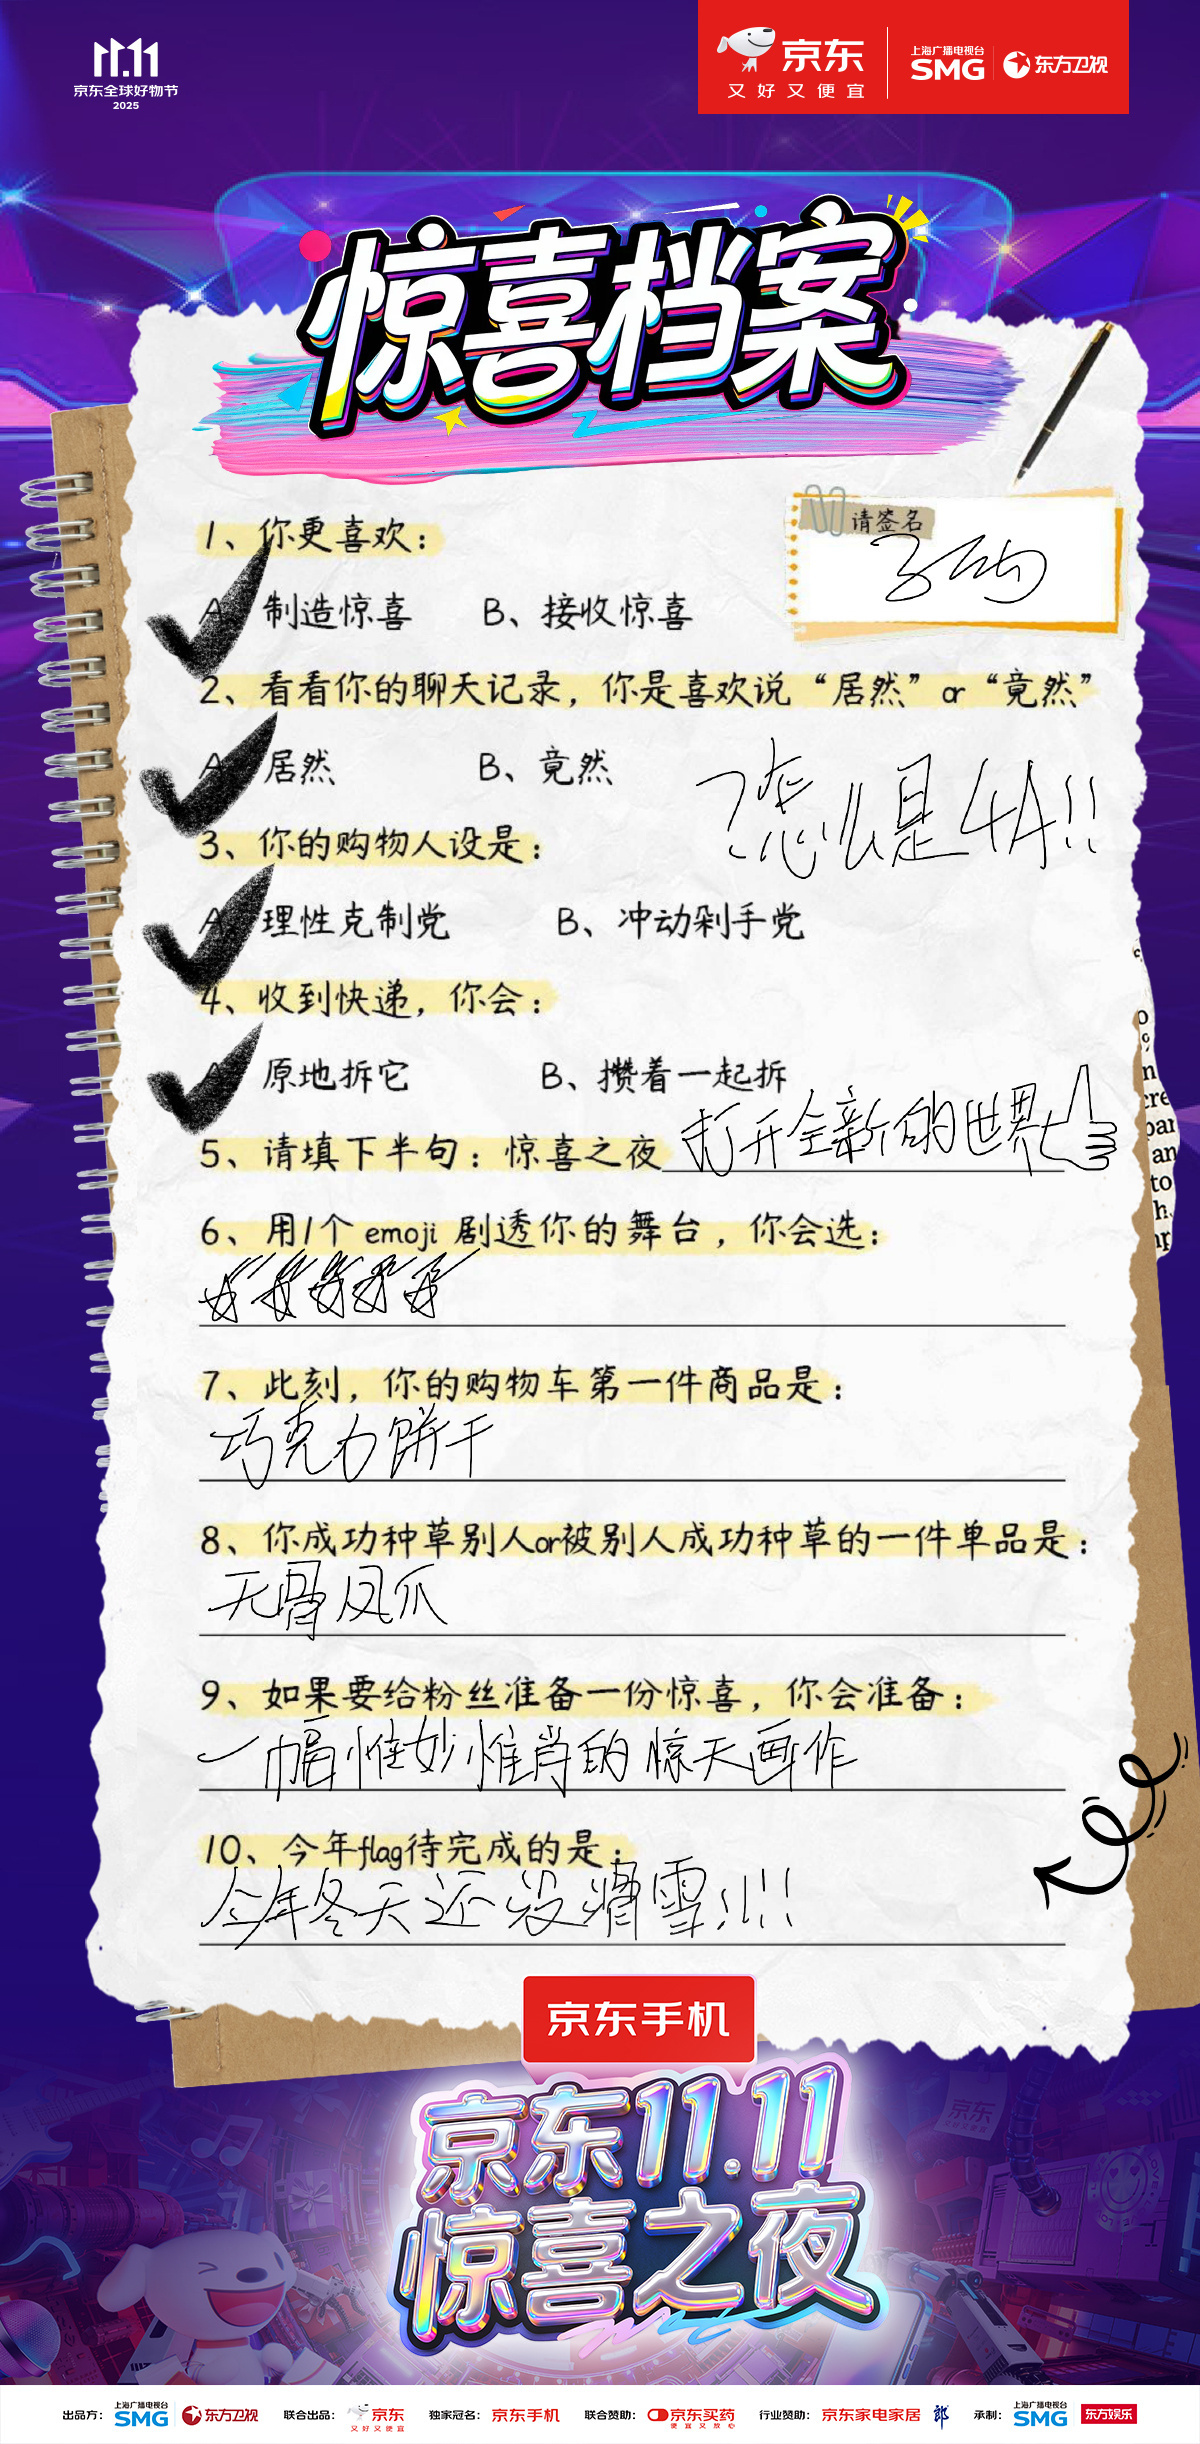 11.11
京东全球好物节
2025
京东
又好又便宜
上海广播电视台
SMG
东方卫视
惊喜档案
请签名
1、你更喜欢：
A 制造惊喜 B、接收惊喜
2、看看你的聊天记录，你是喜欢说“居然”or“竟然”
A 居然 B、竟然
？怎么是4A!!
3、你的购物人设是：
A 理性克制党 B、冲动剁手党
4、收到快递，你会：
原地拆它 B、攒着一起拆
5、请填下半句：惊喜之夜 打开全新的世界
6、用1个 emoji 剧透你的舞台，你会选：
7、此刻，你的购物车第一件商品是：
巧克力饼干
8、你成功种草别人or被别人成功种草的一件单品是：
无骨凤爪
9、如果要给粉丝准备一份惊喜，你会准备：
一幅惟妙惟肖的惊天画作
10、今年flag待完成的是：
今年冬天还没滑雪!!!!
京东手机
京东11.11
惊喜之夜
出品方： 上海广播电视台 SMG 东方卫视 联合出品： 京东 又好又便宜 独家冠名： 京东手机 联合赞助： 京东买药 便宜又放心 行业赞助： 京东家电家居 郎 承制： 上海广播电视台 SMG 东方娱乐